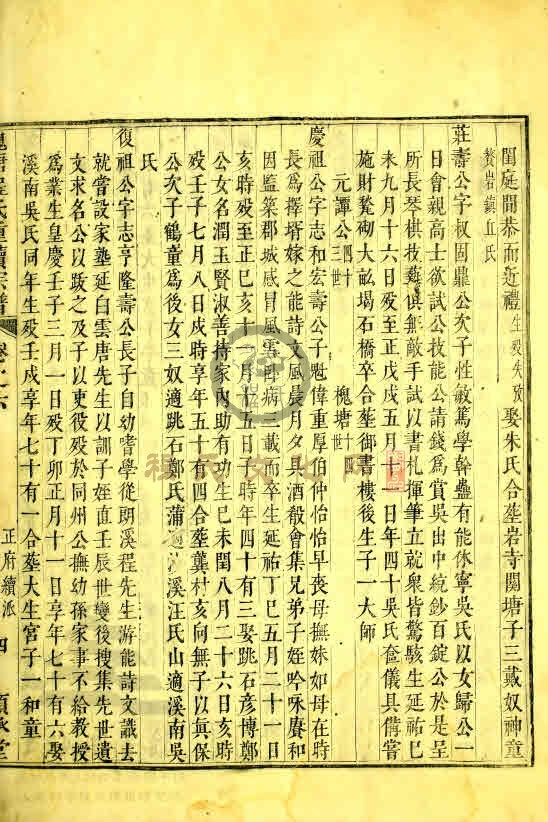 閨庭間恭而近禮生歿失攷娶朱氏合塟岩寺関塘子三戴奴神童
贅岩鎮丘氏
莊壽公字叔固鼎公次子性敏篤學幹蠱有能休寧吳氏以女歸公一
日會親高士欲試公技能公請錢為賞吳出中統鈔百錠公於是呈
所長琴棋技藝俱無敵手試以書札揮筆立就衆皆驚駭生延祐巳
未九月十六日殁至正戊戌五月十 日年四十吳氏奩儀具僃嘗
施財甃砌大畝堨石橋卒合塟御書樓後生子一大師
元譚公四十三世 槐塘十四世
慶祖公字志和宏壽公子魁偉重厚伯仲怡怡早喪母撫妹如母在時
長為擇壻嫁之能詩文風晨月夕具酒殽會集兄弟子姪吟咏賡和
因監築郡城感冒風雪得病二載而卒生延祐丁巳五月二十一日
亥時殁至正巳亥十 月十五日子時年四十有三娶跳石彦博鄭
公女名潤玉賢淑善持家内助有功生巳未閏八月二十六日亥時
殁壬子七月八日戌時享年五十有四合塟龔村亥向無子以眞保
公次子鶴童為後女三奴適跳石鄭氏蒲 適 溪汪氏山適溪南吳
氏
復祖公字志亨隆壽公長子自幼嗜學從朗溪程先生游能詩文識去
就嘗設家塾延白雲唐先生以訓子姪直壬辰世變後搜集先世遺
文求名公以跋之及子以吏役殁於同州公撫幼孫家事不給教授
為業生皇慶壬子三月一日殁丁卯正月十一日享年七十有六娶
溪南吳氏同年生殁壬戌享年七十有一合塟大生宮子一和童
槐塘程氏重續宗譜 卷之六 正府續派 四 順承堂